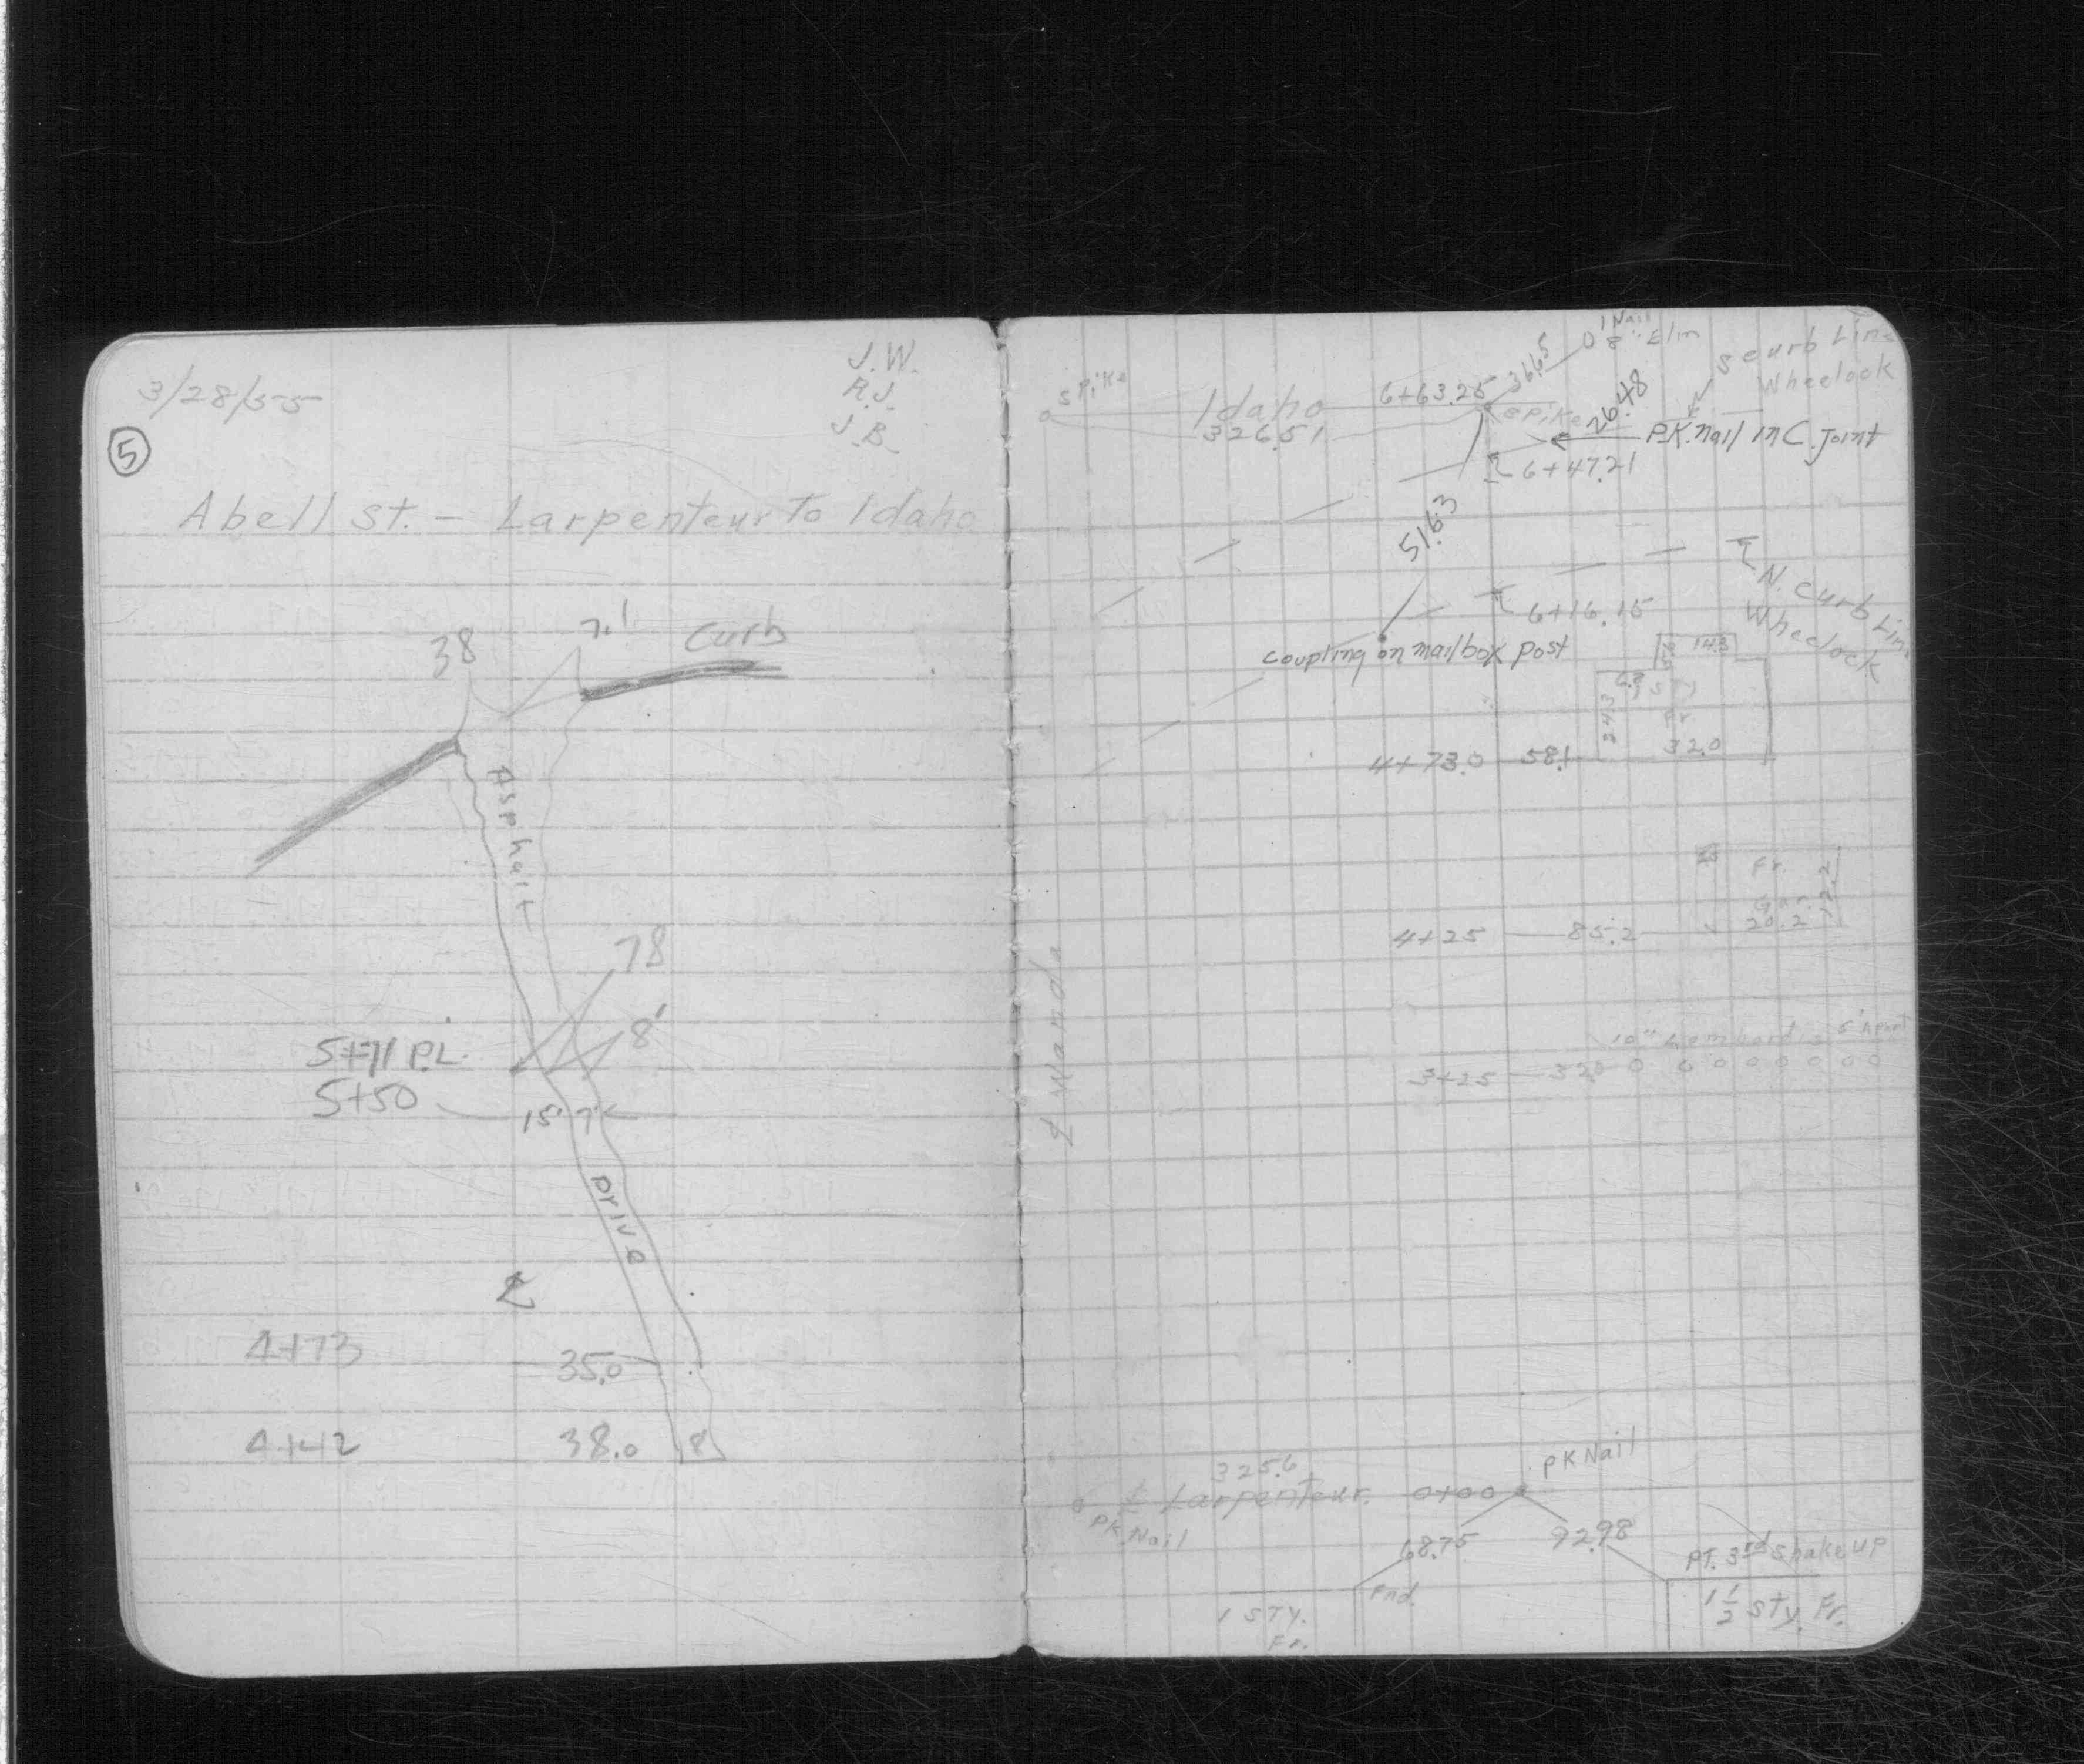 3/28/55
J.W.
R.J.
J.B.
5
Abell St. - Larpenteur To Idaho
38
7.1
Curb
Asphalt
78
8'
5+71 P.L.
5+50
15' 7'
Drive
℄
4+73
35.0
4+42
38.0
8
1 Nail
8" Elm
36.65
S curb Line
Wheelock
spike
Idaho
326.51
6+63.25
spike
26.48
P.K. nail in C. Joint
6+47.21
51.63
N. Curb Line
Wheelock
6+16.15
coupling on mailbox post
5.6
14.3
6.2
1 STY
Fr.
24.3
32.0
4+73.0
58.1
Fr.
Gar.
20.2
12.2
4+25
85.2
10" Lombardi 5' Apart
3+25
32.0
℄ Wanda
PK Nail
325.6
℄ Larpenteur.
0+00
PK Nail
68.75
92.98
PT. 3rd shake up
Fnd.
1 STY.
Fr.
1 1/2 sty. Fr.